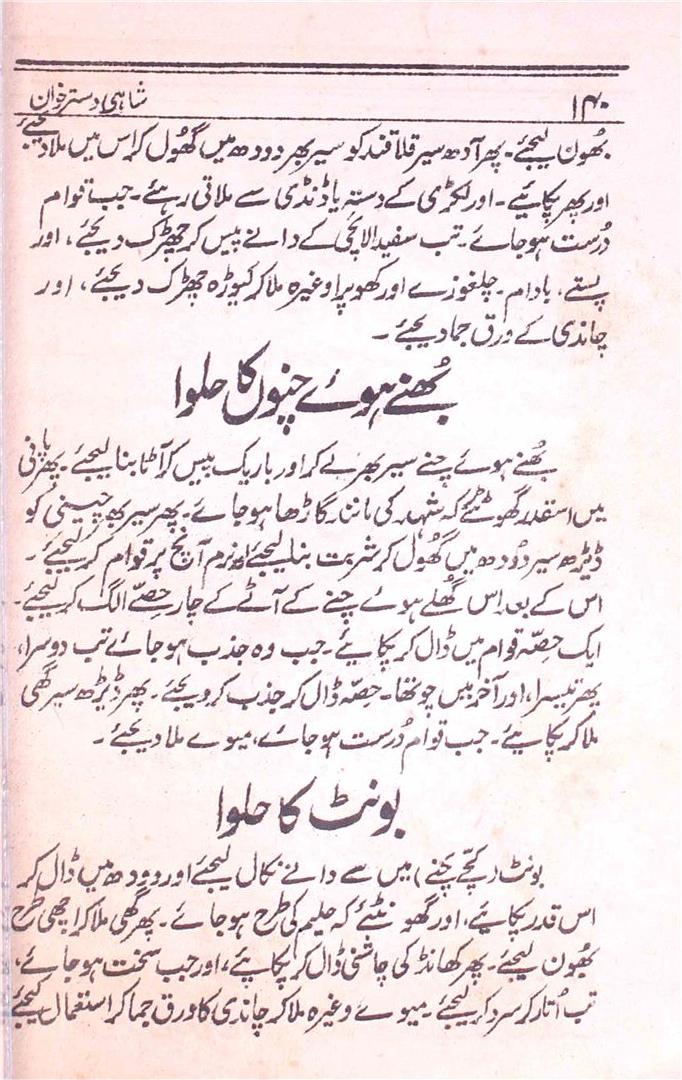 ۱۴۰
شاہی دسترخوان
بھُون لیجئے۔ پھر آدھ سیر قلاقند کو سیر بھر دودھ میں گھُول کر اس میں ملا دیجئے
اور پھر پکائیے۔ اور لکڑی کے دستہ یا ڈنڈی سے ملاتی رہئے۔ جب قوام
دُرست ہو جائے۔ تب سفید الائچی کے دانے پیس کر چھڑک دیجئے، اور
پستے، بادام۔ چلغوزے اور کھوپرا وغیرہ ملا کر کیوڑہ چھڑک دیجئے، اور
چاندی کے ورق جما دیجئے۔
بھُنے ہوئے چنوں کا حلوا
بھُنے ہوئے چنے سیر بھر لے کر اور باریک پیس کر آٹا بنا لیجئے۔ پھر پانی
میں اسقدر گھوٹئے کہ شہد کی مانند گاڑھا ہو جائے۔ پھر سیر بھر چینی کو
ڈیڑھ سیر دُودھ میں گھُول کر شربت بنا لیجئے اور نرم آنچ پر قوام کر لیجئے۔
اس کے بعد اس گھُلے ہوئے چنے کے آٹے کے چار حِصّے الگ کر لیجئے۔
ایک حِصّہ قوام میں ڈال کر پکائیے۔ جب وہ جذب ہو جائے تب دوسرا،
پھر تیسرا، اور آخر میں چوتھا۔ حِصّہ ڈال کر جذب کر دیجئے۔ پھر ڈیڑھ سیر گھی
ملا کر پکائیے۔ جب قوام دُرست ہو جائے، میوے ملا دیجئے۔
بونٹ کا حلوا
بونٹ (کچے چنے) میں سے دانے نکال لیجئے اور دودھ میں ڈال کر
اس قدر پکائیے، اور گھونٹئے کہ حلیم کی طرح ہو جائے۔ پھر گھی ملا کر اچھی طرح
بھُون لیجئے۔ پھر کھانڈ کی چاشنی ڈال کر پکائیے، اور جب سخت ہو جائے،
تب اُتار کر سرد کر لیجئے۔ میوے وغیرہ ملا کر چاندی کا ورق جما کر استعمال کیجئے